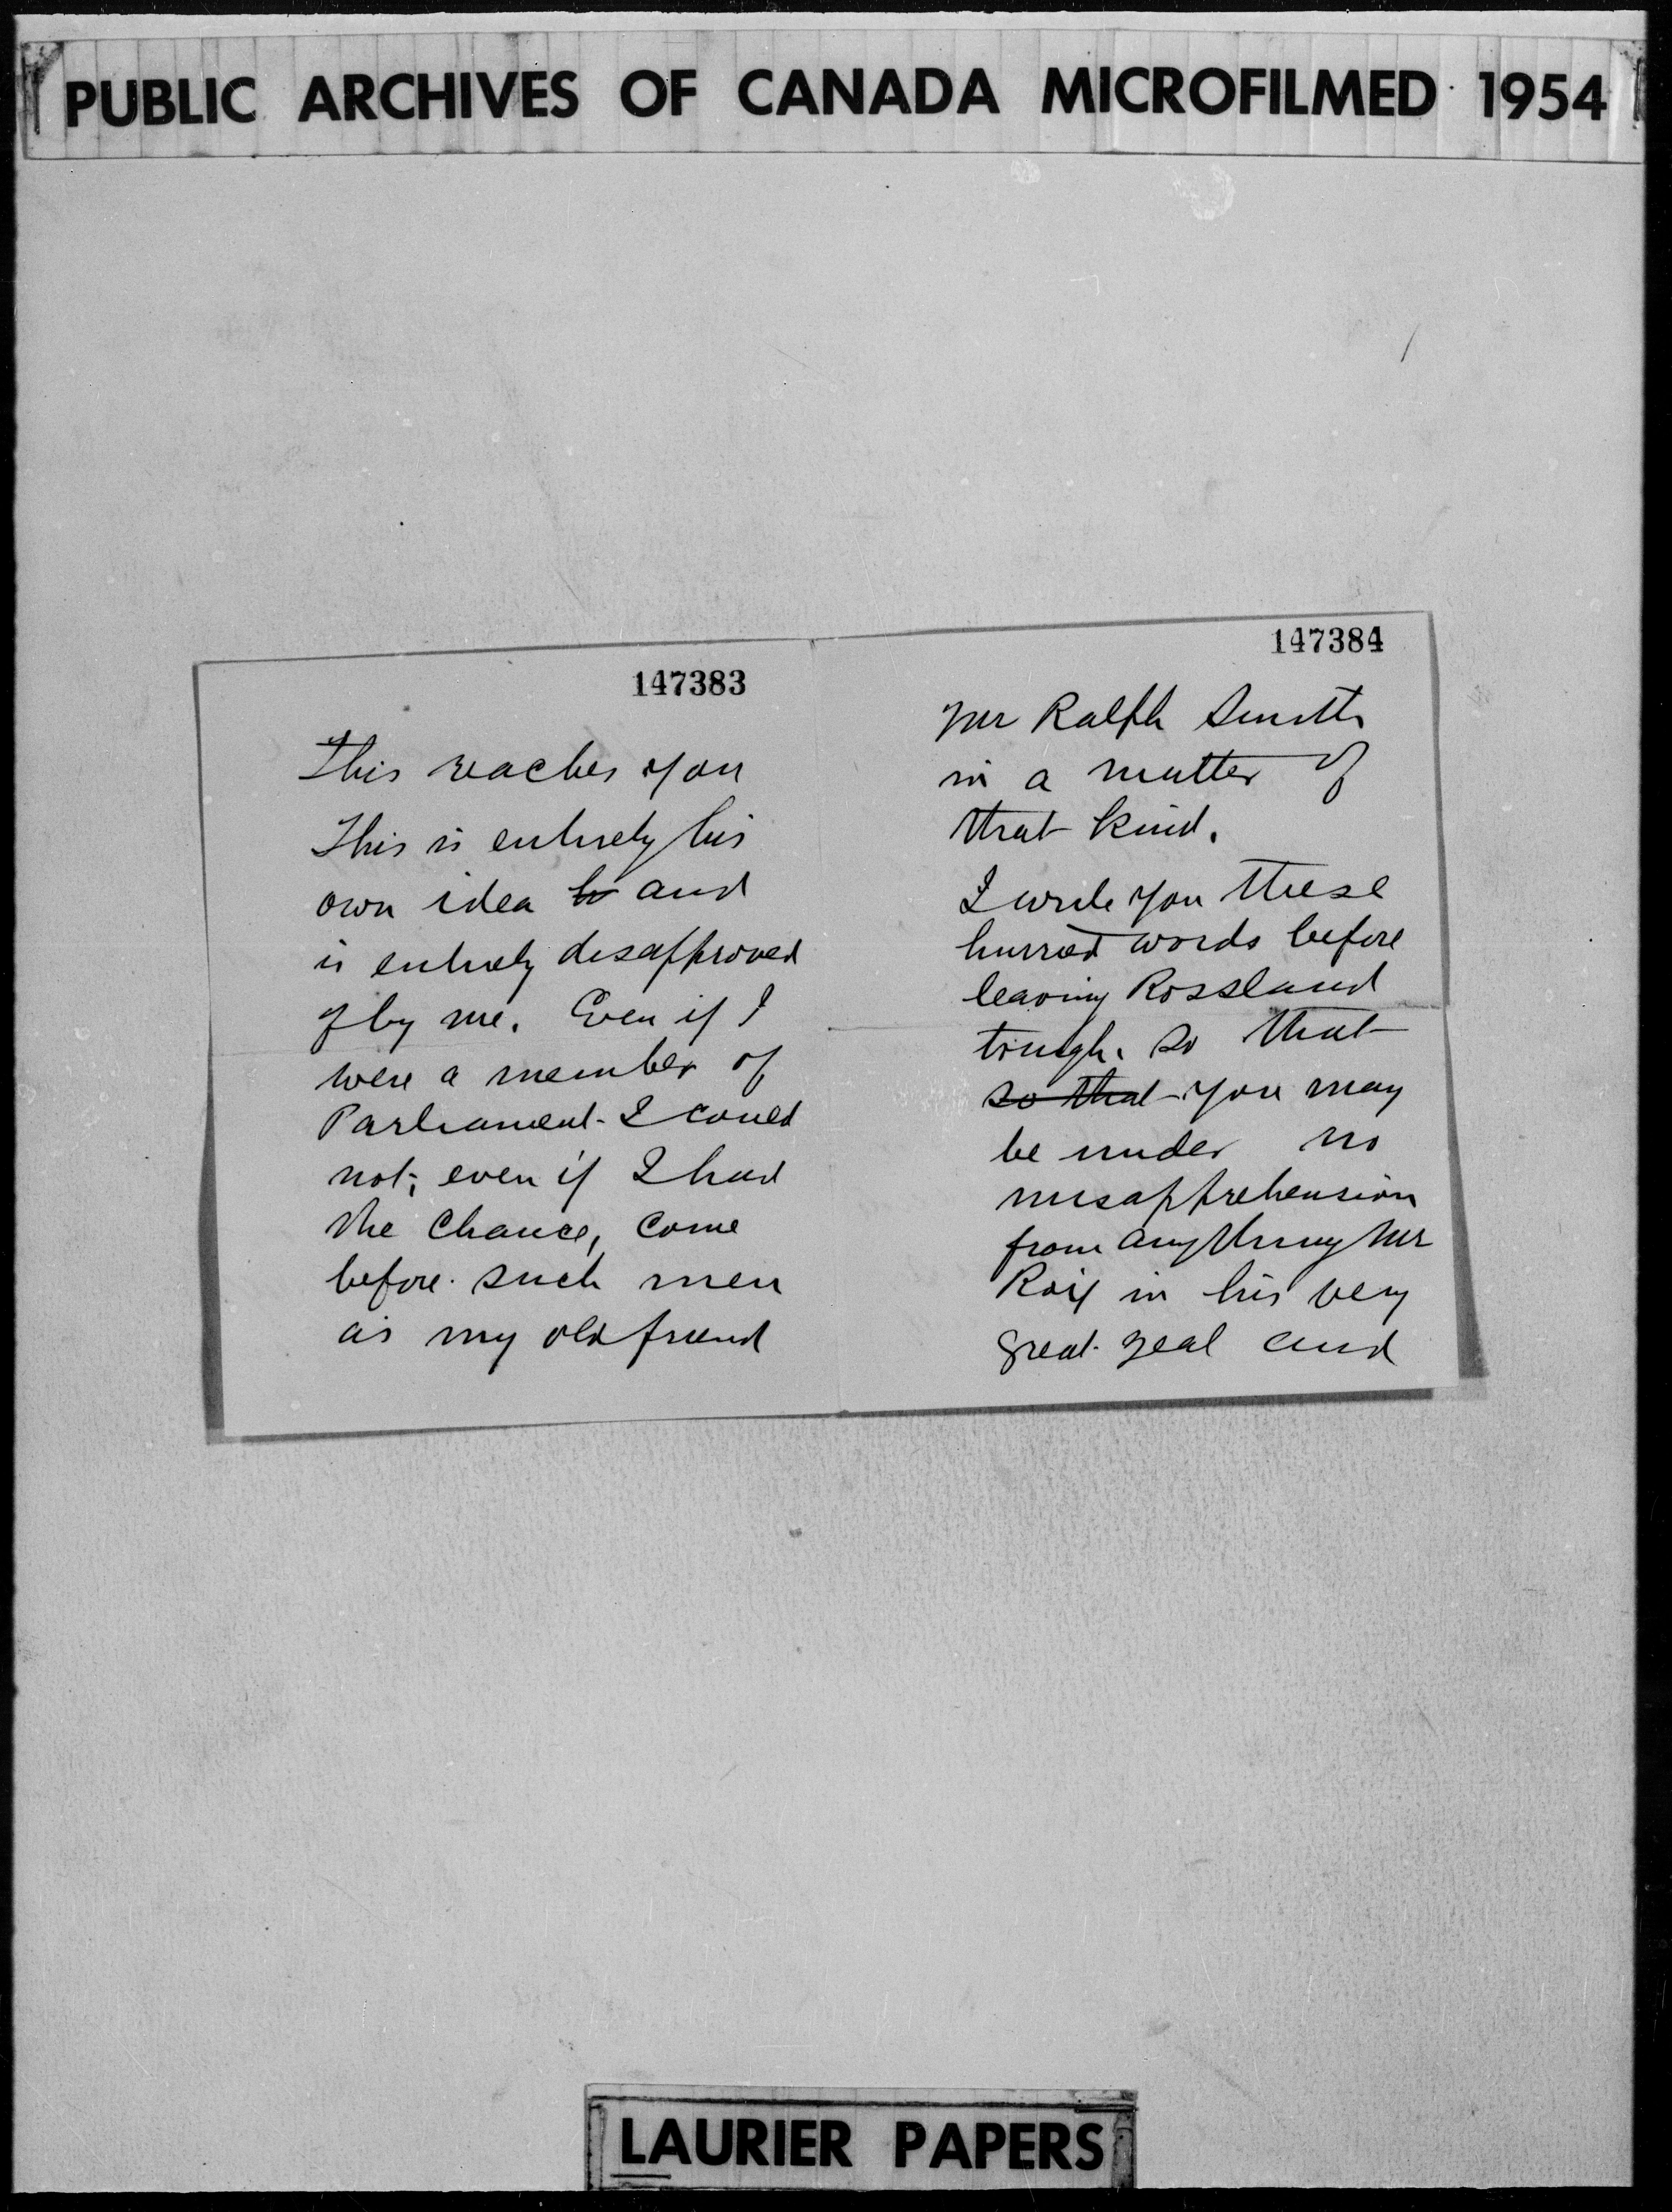 PUBLIC ARCHIVES OF CANADA MICROFILMED 1954
147383
This reaches you
This is entirely his
own idea to and
is entirely disapproved
of by me. Even if I
were a member of
Parliament I could
not, even if I had
the chance, come
before such men
as my old friend
147384
Mr Ralph Smith
in a matter of
that kind.
I write you these
hurried words before
leaving Rossland
tonight so that
so that you may
be under no
misapprehension
from anything Mr
in his very
great zeal and
LAURIER PAPERS